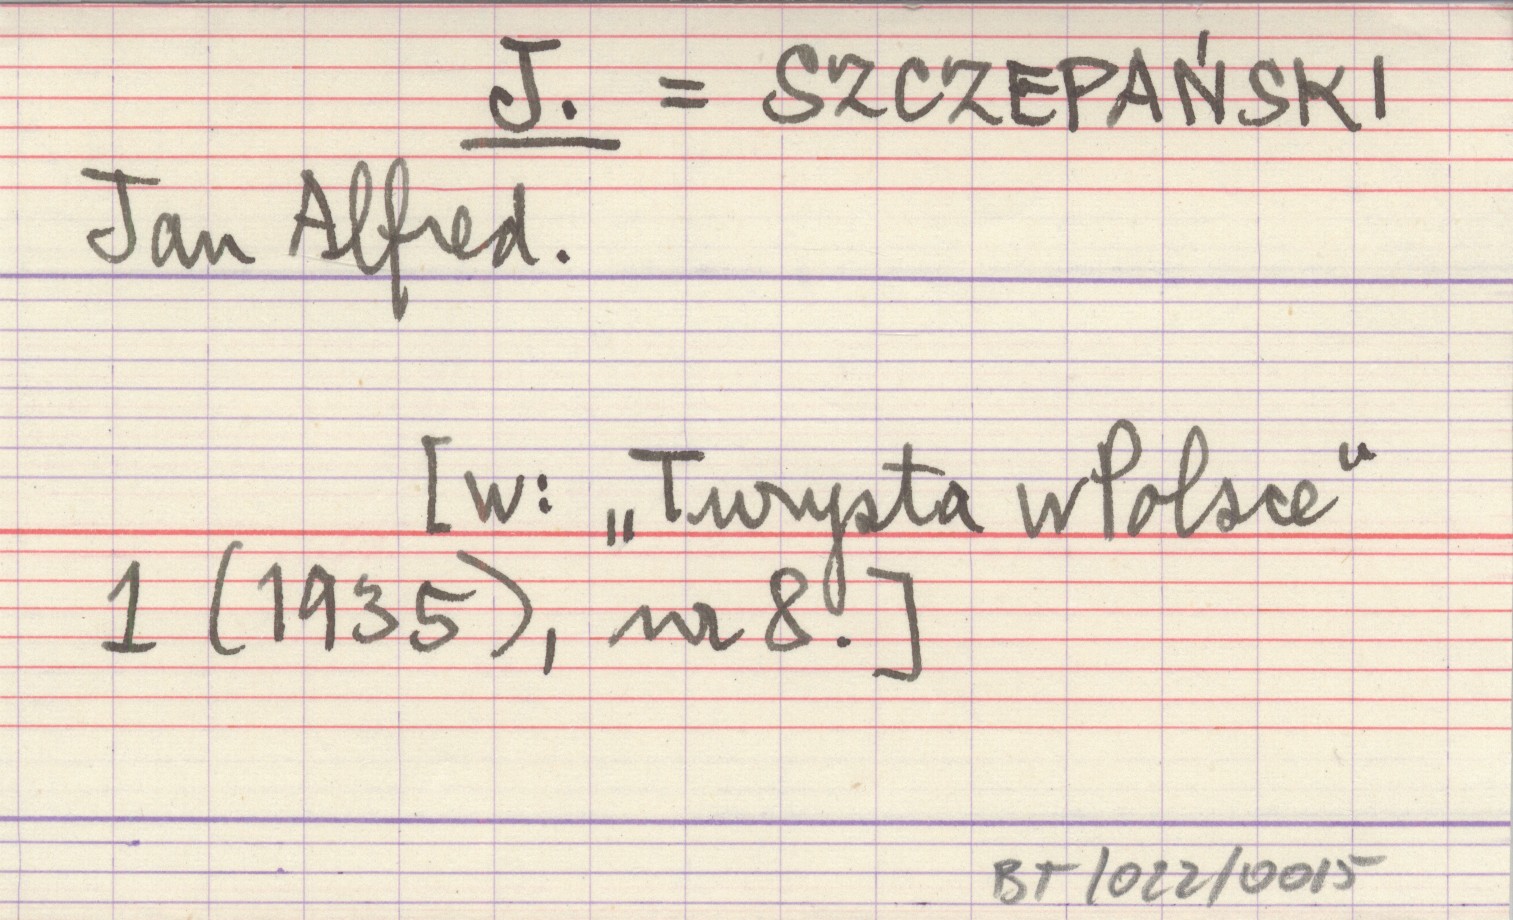 J. = SZCZEPAŃSKI
Jan Alfred.
[w: „Turysta w Polsce"
1 (1935), nr 8.]
BT/022/0015